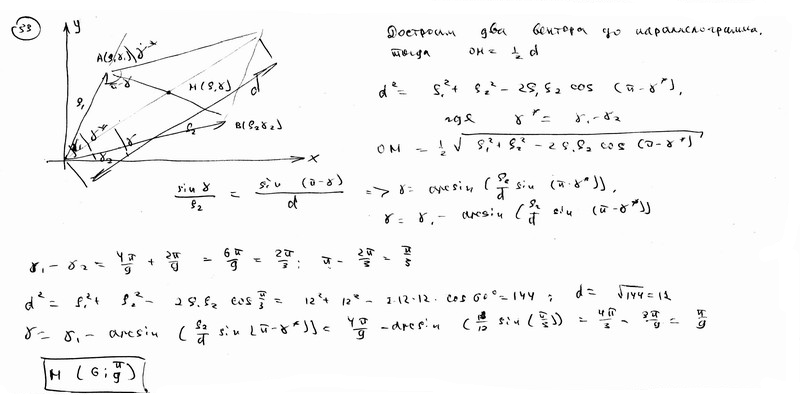 53
y
A(ρ₁γ₁)
M(ρ,γ)
B(ρ₂γ₂)
x
ρ₁
ρ₂
d
Достроим два вектора до параллелограмма.
тогда OM = 1/2 d
d² = ρ₁² + ρ₂² - 2ρ₁ρ₂ cos (π-γ*),
где γ* = γ₁-γ₂
OM = 1/2 √(ρ₁²+ρ₂² - 2ρ₁ρ₂ cos (π-γ*))
sin γ / ρ₂ = sin (π-γ) / d => γ = arcsin (ρ₂/d sin (π-γ*)),
γ = γ₁ - arcsin (ρ₂/d sin (π-γ*))
γ₁ - γ₂ = 4π/9 + 2π/9 = 6π/9 = 2π/3; π - 2π/3 = π/3
d² = ρ₁² + ρ₂² - 2ρ₁ρ₂ cos π/3 = 12² + 12² - 2·12·12 · cos 60° = 144 ; d = √144 = 12
γ = γ₁ - arcsin (ρ₂/d sin (π-γ*)) = 4π/9 - arcsin (12/12 sin (π/3)) = 4π/3 - 3π/9 = π/9
M (6; π/9)